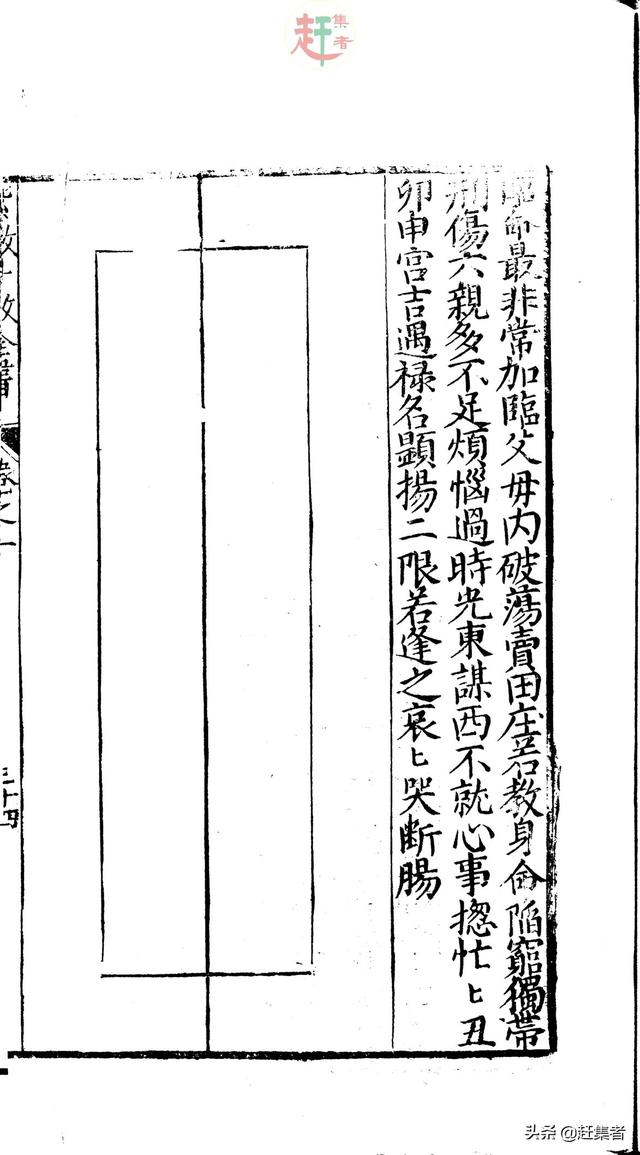 最非常加臨父母內破蕩賣田庄若教身命陷窮獨帶
刑傷六親多不足煩惱過時光東謀西不就心事揔忙〻丑
卯申宮吉遇禄名顯揚二限若逢之哀〻哭断腸
數
卷之一
三十四
赶集者
头条 @赶集者